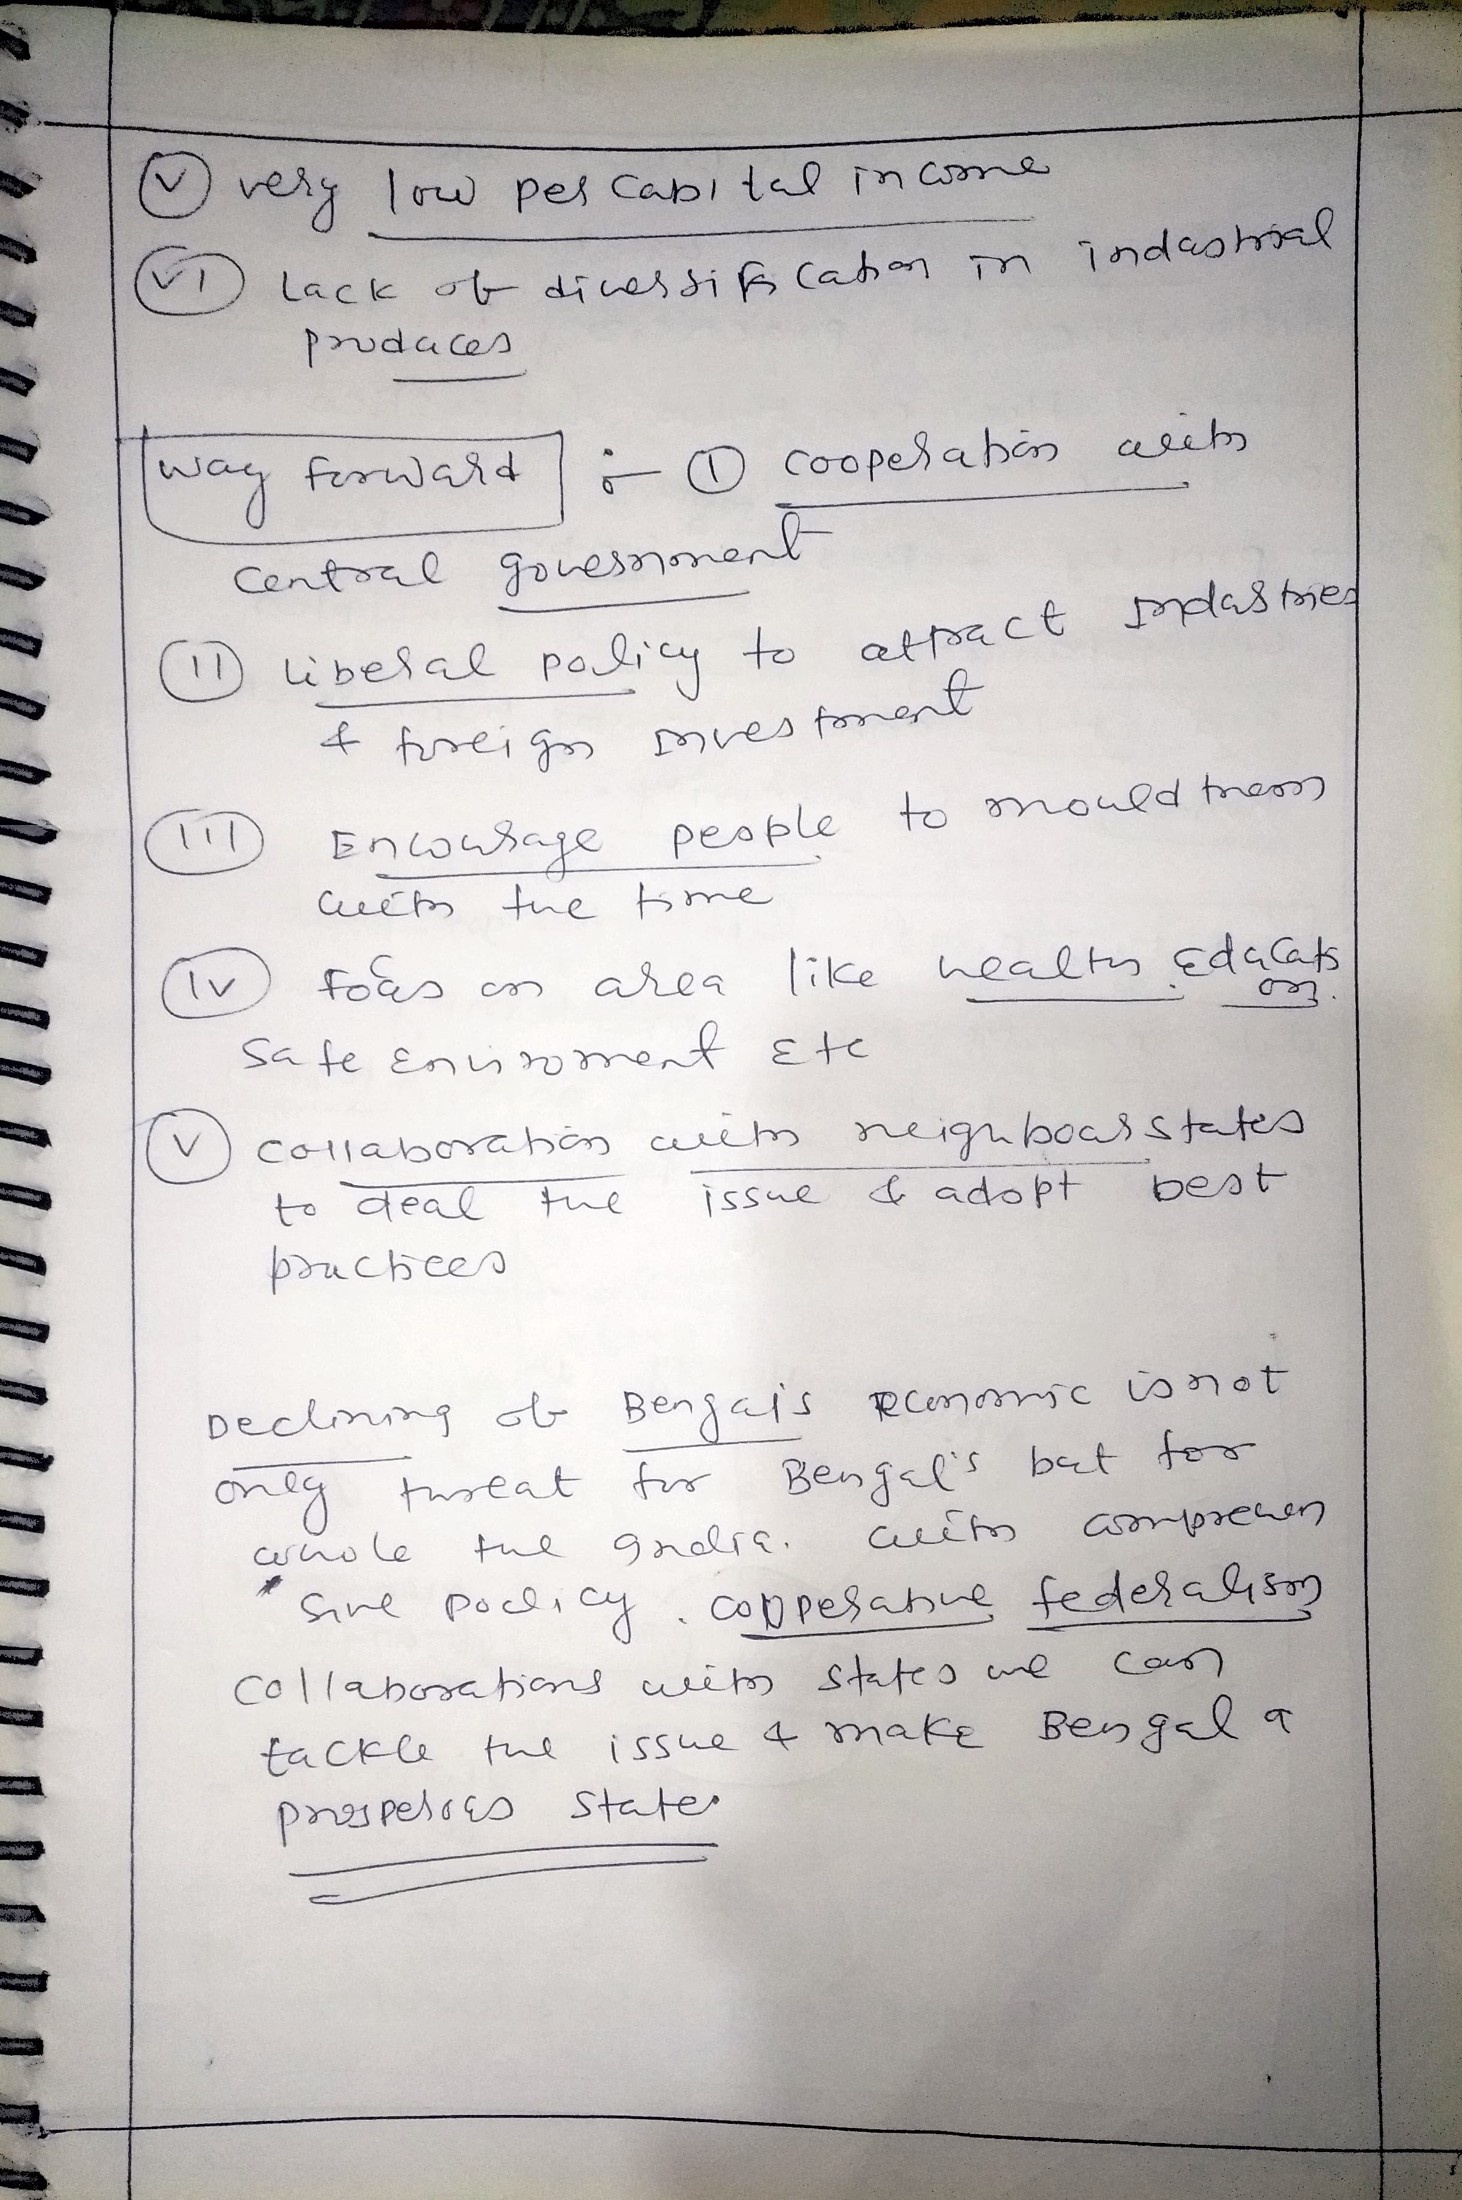 (V) very low per capital income
(VI) Lack of diversification in industrial
produces
Way forward :- (I) cooperation with
central government
(II) Liberal policy to attract industries
& foreign investment
(III) Encourage people to mould them
with the time
(IV) Focus on area like health, Educati
on.
safe enviroment Etc
(V) Collaboration with neighbour states
to deal the issue & adopt best
practices
Declining of Bengal's economic is not
only threat for Bengal's but for
whole the India. with comprehen
sive policy, copperative federalism
collaborations with states we can
tackle the issue & make Bengal a
prosperous state.